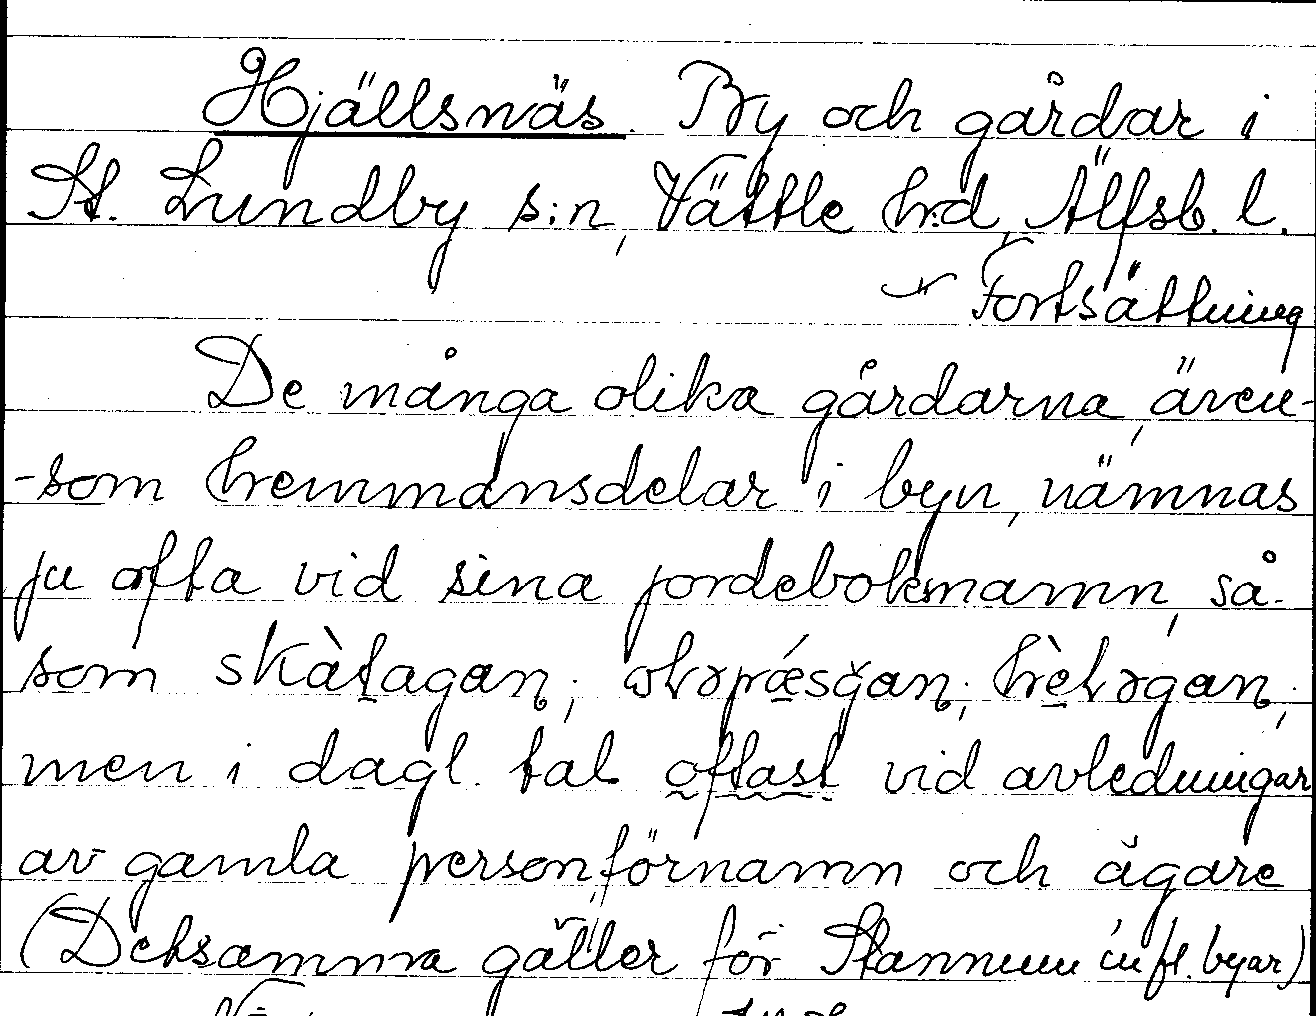 Hjällsnäs. By och gårdar i
St. Lundby s:n, Vättle h:d, Älfsb. l.
Fortsättning
De många olika gårdarna, även-
-som hemmansdelar i byn, nämnas
ju ofta vid sina jordeboksnamn, så-
som skàtagan;
men i dagl. tal oftast vid avledningar
av gamla personförnamn och ägare
(Detsamma gäller för Stannum m fl. byar)